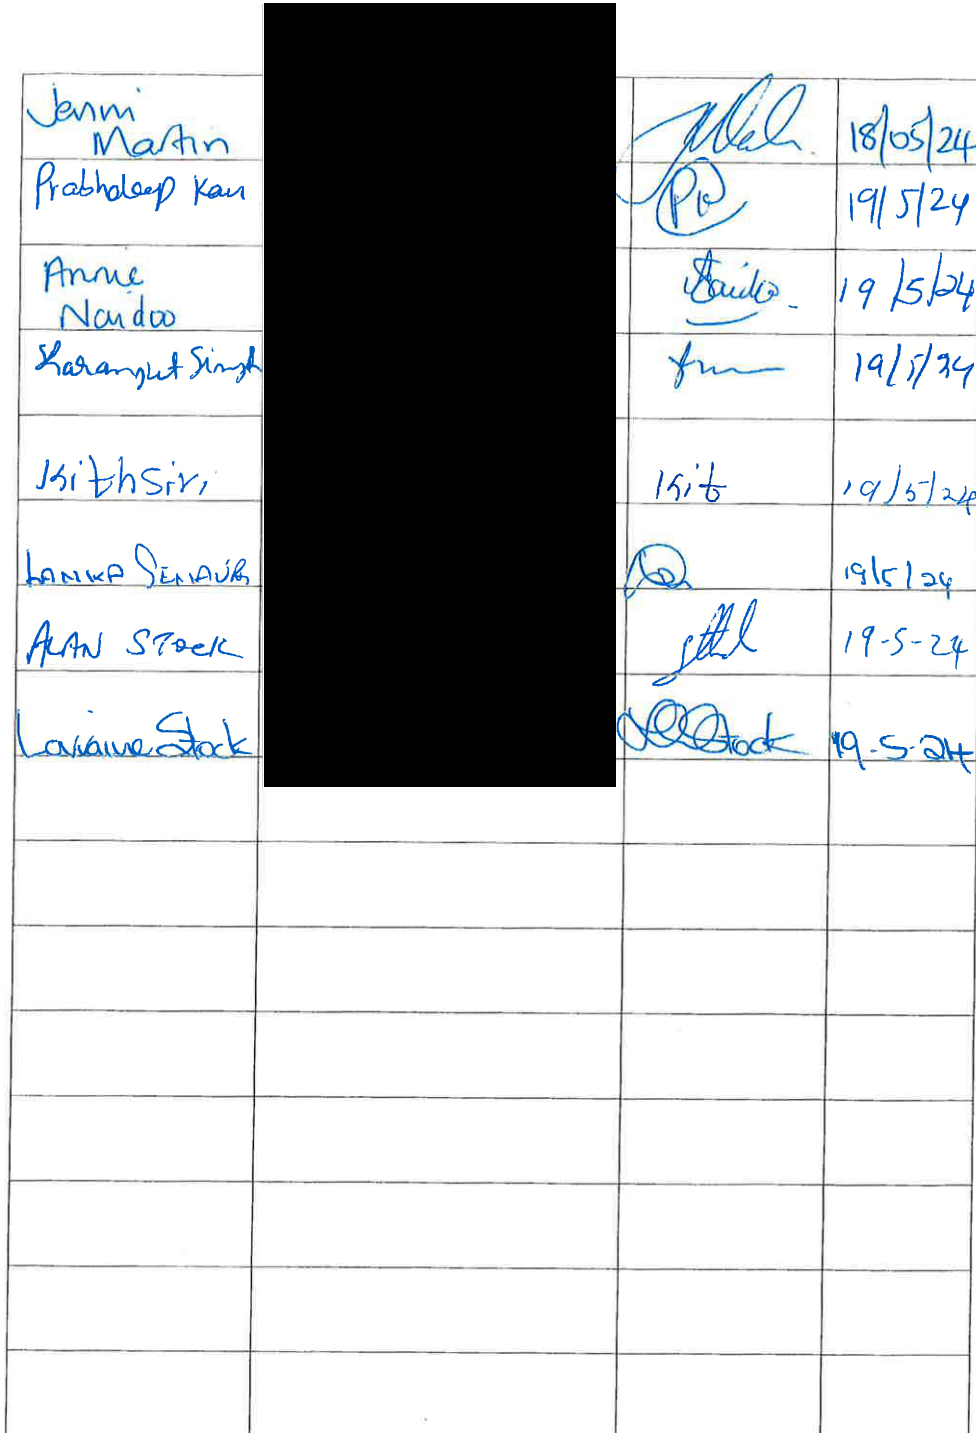 Jenni
Martin
18/05/24
Prabhdeep Kaur
PK
19/5/24
Annie
Naidoo
Naidoo
19/5/24
Singh
19/5/24
Kithsiri
Kit
19/5/24
LANKA
19/5/24
ALAN STOCK
19-5-24
Lorraine Stock
Stock
19-5-24